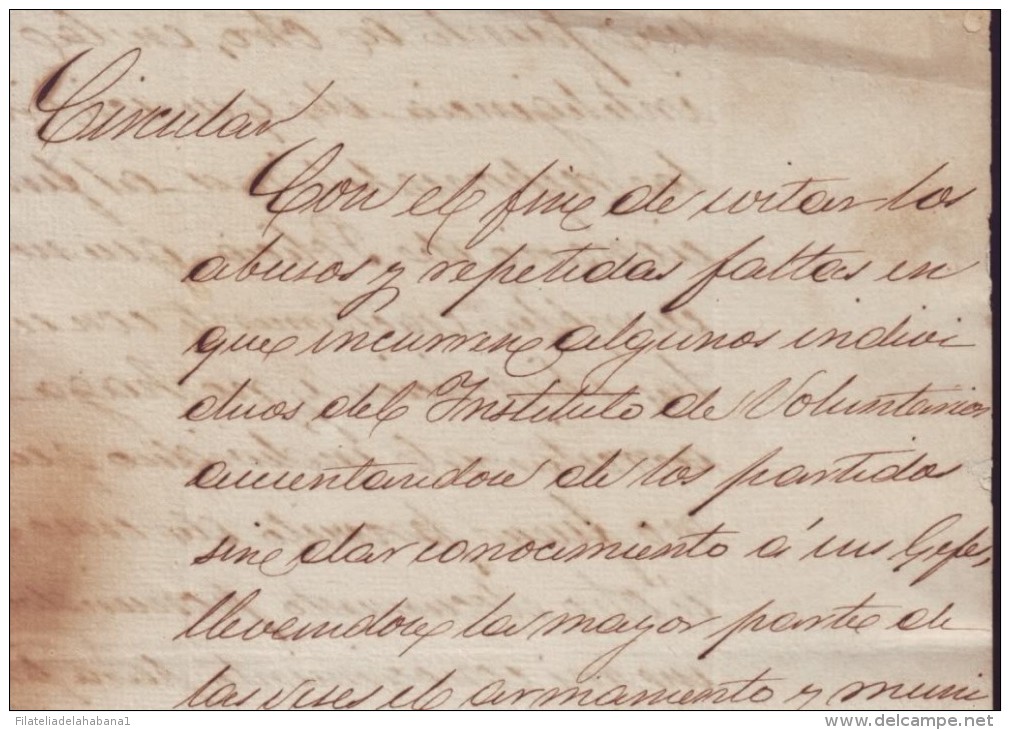 Circular
Con el fin de evitar los
abusos y repetidas faltas en
que incurren algunos indivi
duos del Instituto de Voluntarios
ausentandose de los partidos
sin dar conocimiento á sus Gefes,
llevandose la mayor parte de
las veses el armamento y muni
Filateliadelahabana1
www.delcampe.net